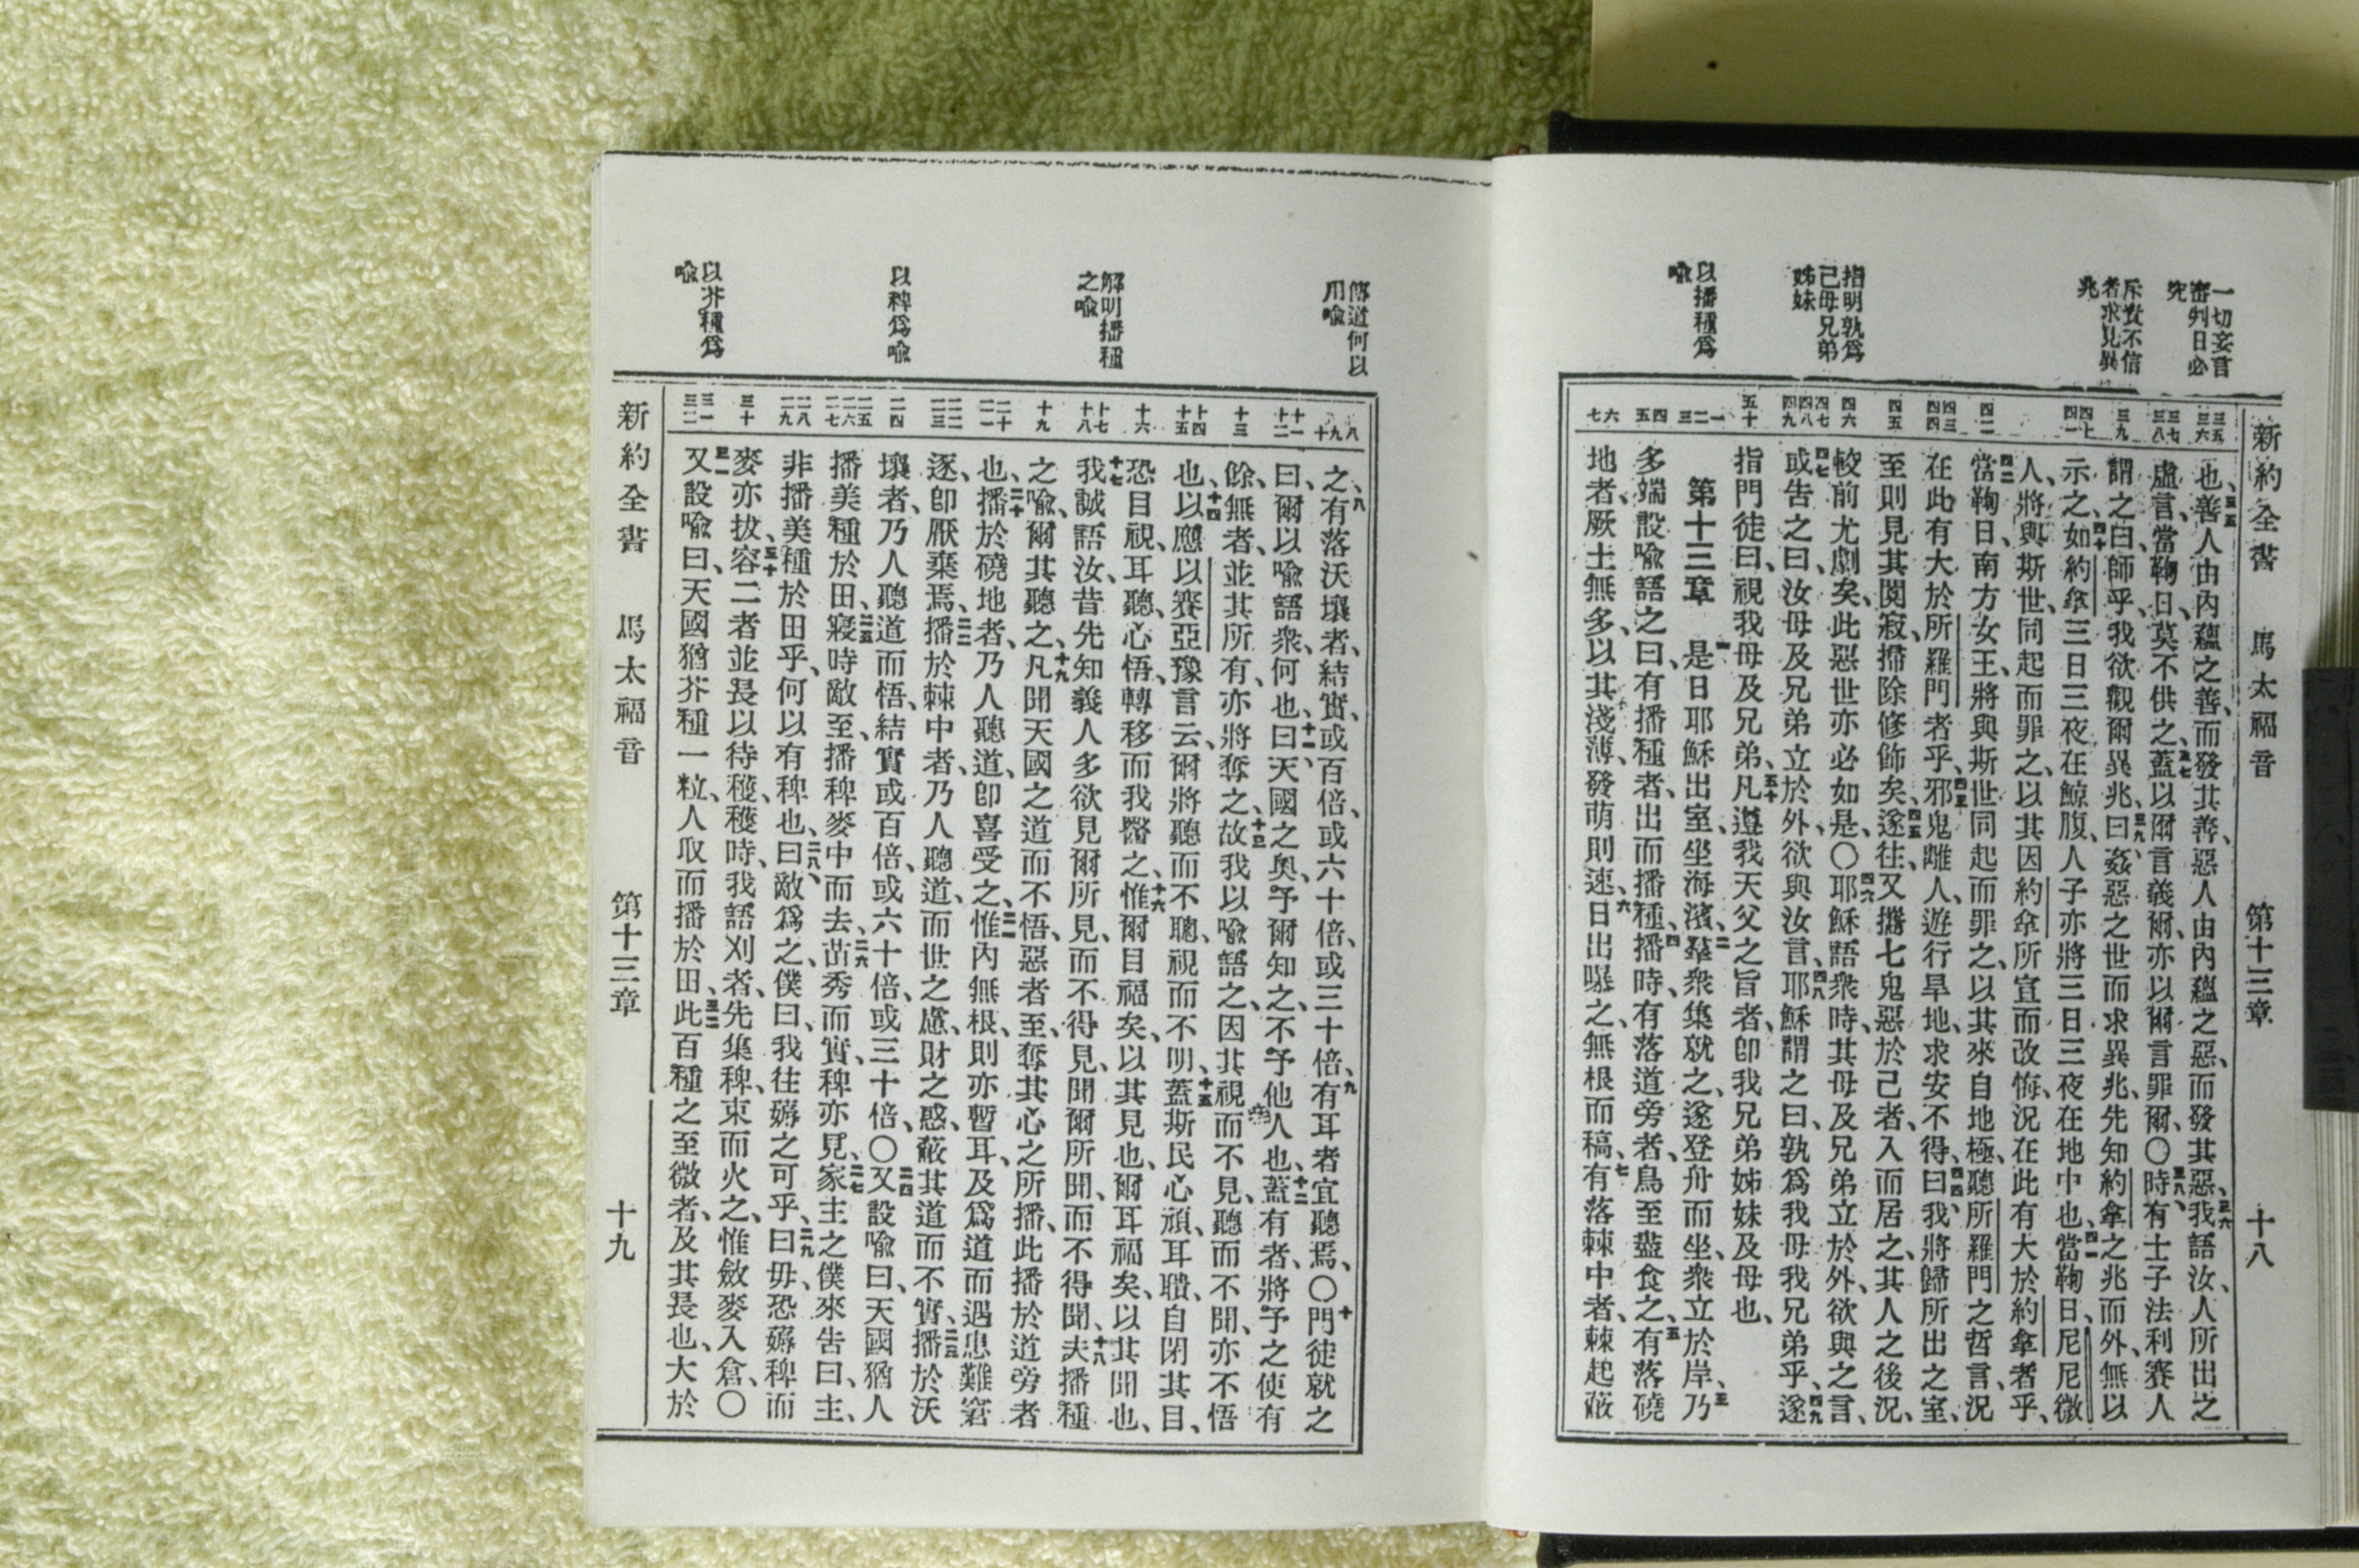 新約全書 馬太福音 第十三章 十八
一切妄言
審判日必
究
斥責不信
者求見異
兆
指明孰為
己母兄弟
姊妹
以播種為
喻
三五
三六
三七
三八
三九
四十
四一
四二
四三
四四
四五
四六
四七
四八
四九
五十
一
二
三
四
五
六
七
也、三五善人由內蘊之善、而發其善、惡人由內蘊之惡、而發其惡、三六我語汝、人所出之
虛言、當鞫日、莫不供之、三七蓋以爾言義爾、亦以爾言罪爾、〇三八時有士子法利賽人
謂之曰、師乎、我欲觀爾異兆、三九曰、姦惡之世而求異兆、先知約拿之兆而外、無以
示之、四十如約拿三日三夜在鯨腹、人子亦將三日三夜在地中也、四一當鞫日、尼尼微
人、將與斯世、同起而罪之、以其因約拿所宣而改悔、況在此有大於約拿者乎、
四二當鞫日、南方女王、將與斯世同起而罪之、以其來自地極、聽所羅門之哲言、況
在此有大於所羅門者乎、四三邪鬼離人、遊行旱地、求安不得、四四曰、我將歸所出之室、
至則見其閴寂、掃除修飾矣、四五遂往、又攜七鬼惡於己者、入而居之、其人之後況、
較前尤劇矣、此惡世亦必如是、〇四六耶穌語衆時、其母及兄弟立於外、欲與之言、
四七或告之曰、汝母及兄弟立於外、欲與汝言、四八耶穌謂之曰、孰為我母我兄弟乎、四九遂
指門徒曰、視我母及兄弟、五十凡遵我天父之旨者、卽我兄弟姊妹及母也、
第十三章 一是日耶穌出室、坐海濱、二羣衆集就之、遂登舟而坐、衆立於岸、三乃
多端設喻語之曰、有播種者、出而播種、四播時、有落道旁者、鳥至盡食之、五有落磽
地者、厥土無多、以其淺薄、發萌則速、六日出曝之、無根而稿、七有落棘中者、棘起蔽
傳道何以
用喻
解明播種
之喻
以稗為喻
以芥種為
喻
八
九
十
十一
十二
十三
十四
十五
十六
十七
十八
十九
二十
二一
二二
二三
二四
二五
二六
二七
二八
二九
三十
三一
三二
之、八有落沃壤者、結實、或百倍、或六十倍、或三十倍、九有耳者宜聽焉、〇十門徒就之
曰、爾以喻語衆、何也、十一曰、天國之奧、予爾知之、不予他人也、十二蓋有者、將予之使有
餘、無者、並其所有、亦將奪之、十三故我以喻語之、因其視而不見、聽而不聞、亦不悟
也、十四以應以賽亞豫言云、爾將聽而不聰、視而不明、十五蓋斯民心頑、耳聵、自閉其目、
恐目視、耳聽、心悟、轉移而我醫之、十六惟爾目福矣、以其見也、爾耳福矣、以其聞也、
十七我誠語汝、昔先知義人多欲見爾所見、而不得見、聞爾所聞、而不得聞、十八夫播種
之喻、爾其聽之、十九凡聞天國之道而不悟、惡者至、奪其心之所播、此播於道旁者
也、二十播於磽地者、乃人聽道、卽喜受之、二一惟內無根、則亦暫耳、及為道而遇患難窘
逐、卽厭棄焉、二二播於棘中者、乃人聽道、而世之慮、財之惑、蔽其道而不實、二三播於沃
壤者、乃人聽道而悟、結實或百倍、或六十倍、或三十倍、〇二四又設喻曰、天國猶人
播美種於田、二五寢時敵至、播稗麥中而去、二六苗秀而實、稗亦見、二七家主之僕來告曰、主、
非播美種於田乎、何以有稗也、二八曰、敵為之、僕曰、我往薅之可乎、二九曰、毋、恐薅稗而
麥亦拔、三十容二者並長以待穫、穫時、我語刈者、先集稗、束而火之、惟斂麥入倉、〇
三一又設喻曰、天國猶芥種一粒、人取而播於田、三二此百種之至微者、及其長也、大於
新約全書 馬太福音 第十三章 十九